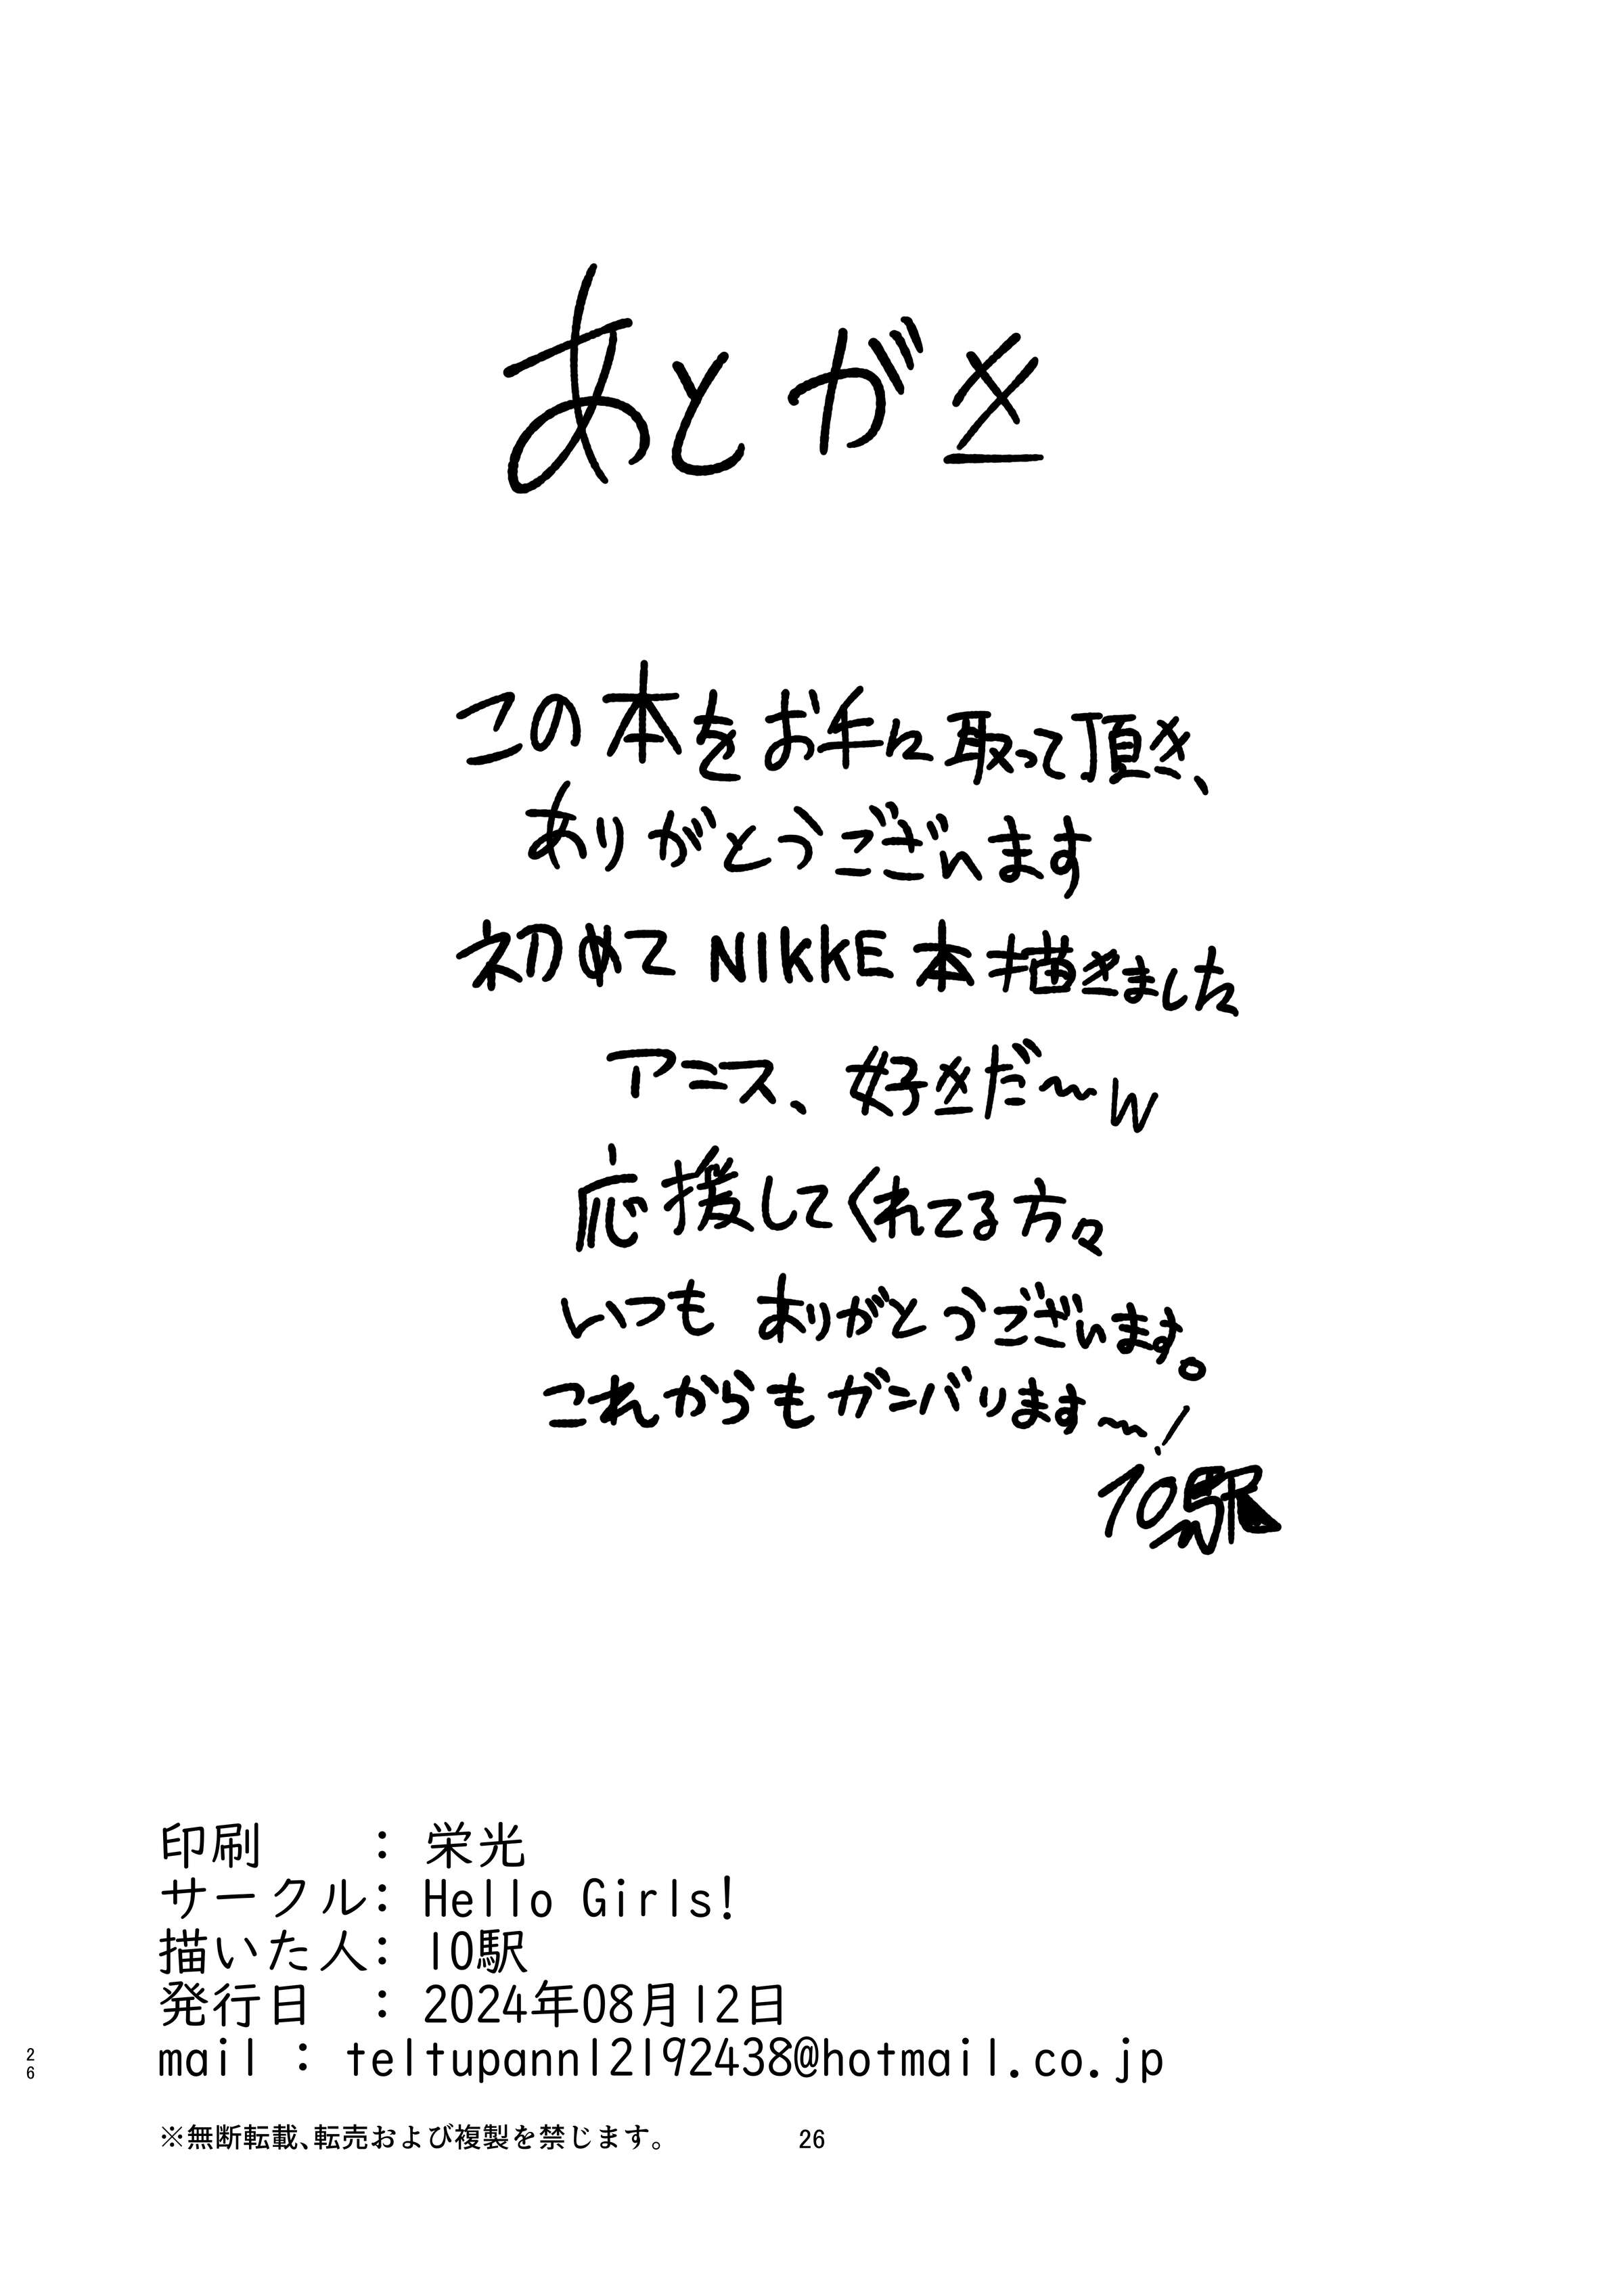 あとがき
この本をお手に取って頂き、
ありがとうございます
初めて NIKKE 本描きました
アニス、好きだ〜w
応援してくれてる方々
いつも ありがとうございます。
これからもガンバります〜!
10駅
印刷 : 栄光
サークル: Hello Girls!
描いた人: 10駅
発行日 : 2024年08月12日
mail : teltupann12192438@hotmail.co.jp
26
※無断転載、転売および複製を禁じます。
26